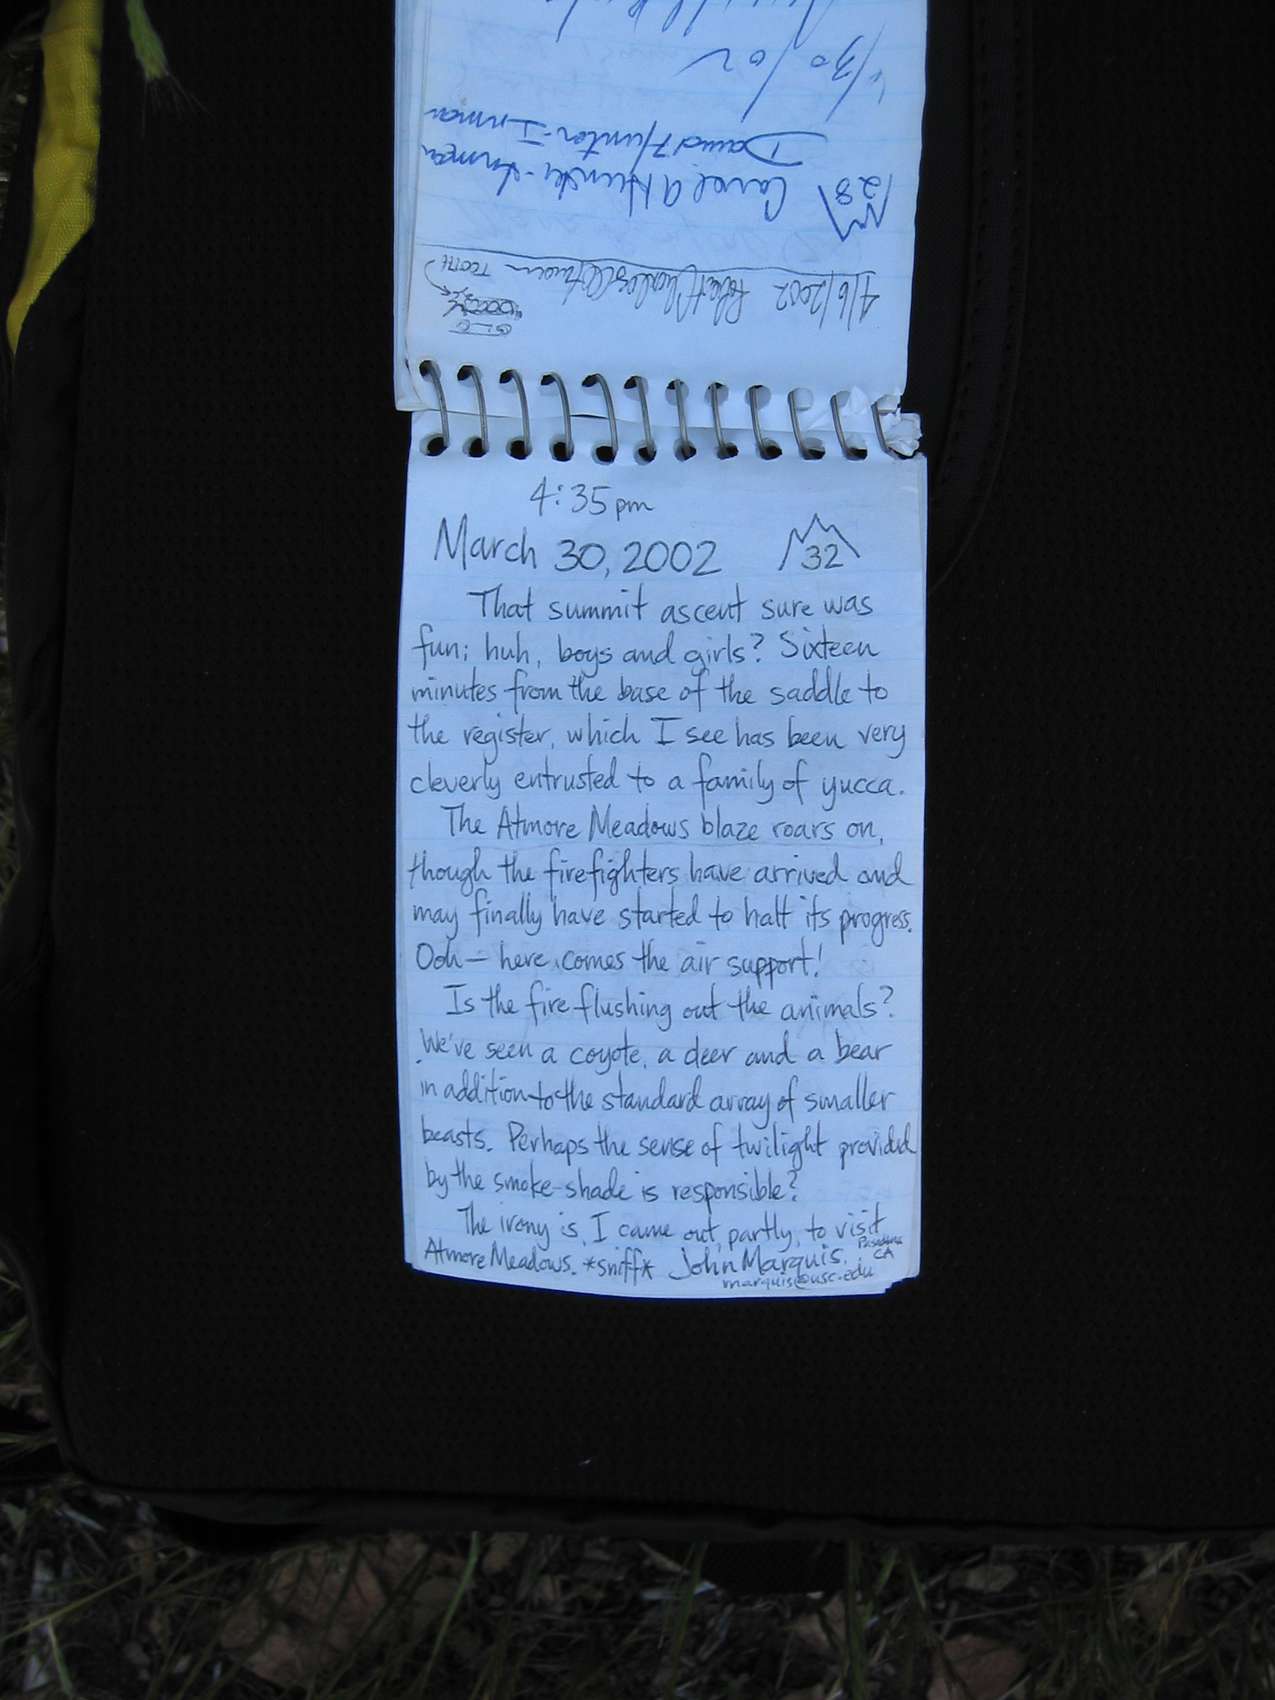 4/30/02
David Hunter-Inman
Carol A Hunter-Inman
28
4/6/2002 Robert
TOOTH
4:35 pm
March 30, 2002 32
That summit ascent sure was
fun; huh, boys and girls? Sixteen
minutes from the base of the saddle to
the register, which I see has been very
cleverly entrusted to a family of yucca.
The Atmore Meadows blaze roars on,
though the firefighters have arrived and
may finally have started to halt its progress.
Ooh— here comes the air support!
Is the fire flushing out the animals?
We've seen a coyote, a deer and a bear
in addition to the standard array of smaller
beasts. Perhaps the sense of twilight provided
by the smoke-shade is responsible?
The irony is, I came out, partly, to visit
Atmore Meadows. *sniff* John Marquis. Pasadena
CA
marquis@usc.edu